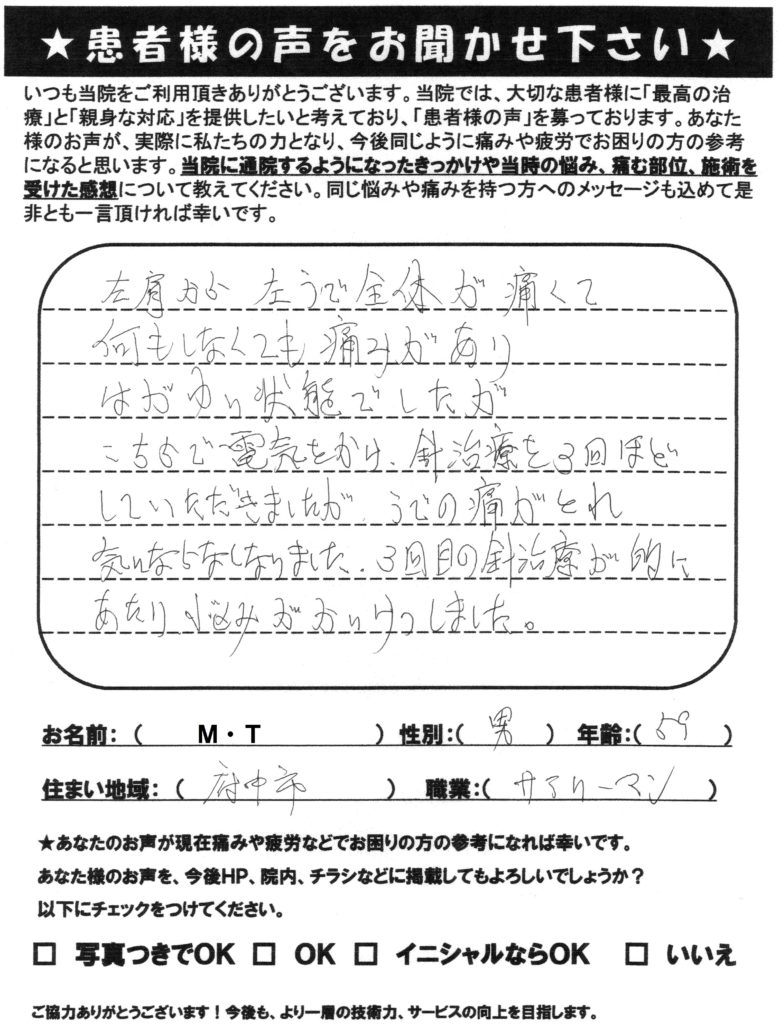 ★患者様の声をお聞かせ下さい★
いつも当院をご利用頂きありがとうございます。当院では、大切な患者様に「最高の治
療」と「親身な対応」を提供したいと考えており、「患者様の声」を募っております。あなた
様のお声が、実際に私たちの力となり、今後同じように痛みや疲労でお困りの方の参考
になると思います。当院に通院するようになったきっかけや当時の悩み、痛む部位、施術を
受けた感想について教えてください。同じ悩みや痛みを持つ方へのメッセージも込めて是
非とも一言頂ければ幸いです。
左肩から 左うで全体が痛くて
何もしなくても痛みがあり
はがゆい状態でしたが
こちらで電気をかけ、針治療を3回ほど
していただきましたが、うでの痛がとれ
気にならなくなりました。3回目の針治療が的に
あたり、悩みがかいけつしました。
お名前:( M・T ) 性別:( 男 ) 年齢:( 59 )
住まい地域:( 府中市 ) 職業:( サラリーマン )
★あなたのお声が現在痛みや疲労などでお困りの方の参考になれば幸いです。
あなた様のお声を、今後HP、院内、チラシなどに掲載してもよろしいでしょうか?
以下にチェックをつけてください。
□ 写真つきでOK □ OK □ イニシャルならOK □ いいえ
ご協力ありがとうございます!今後も、より一層の技術力、サービスの向上を目指します。